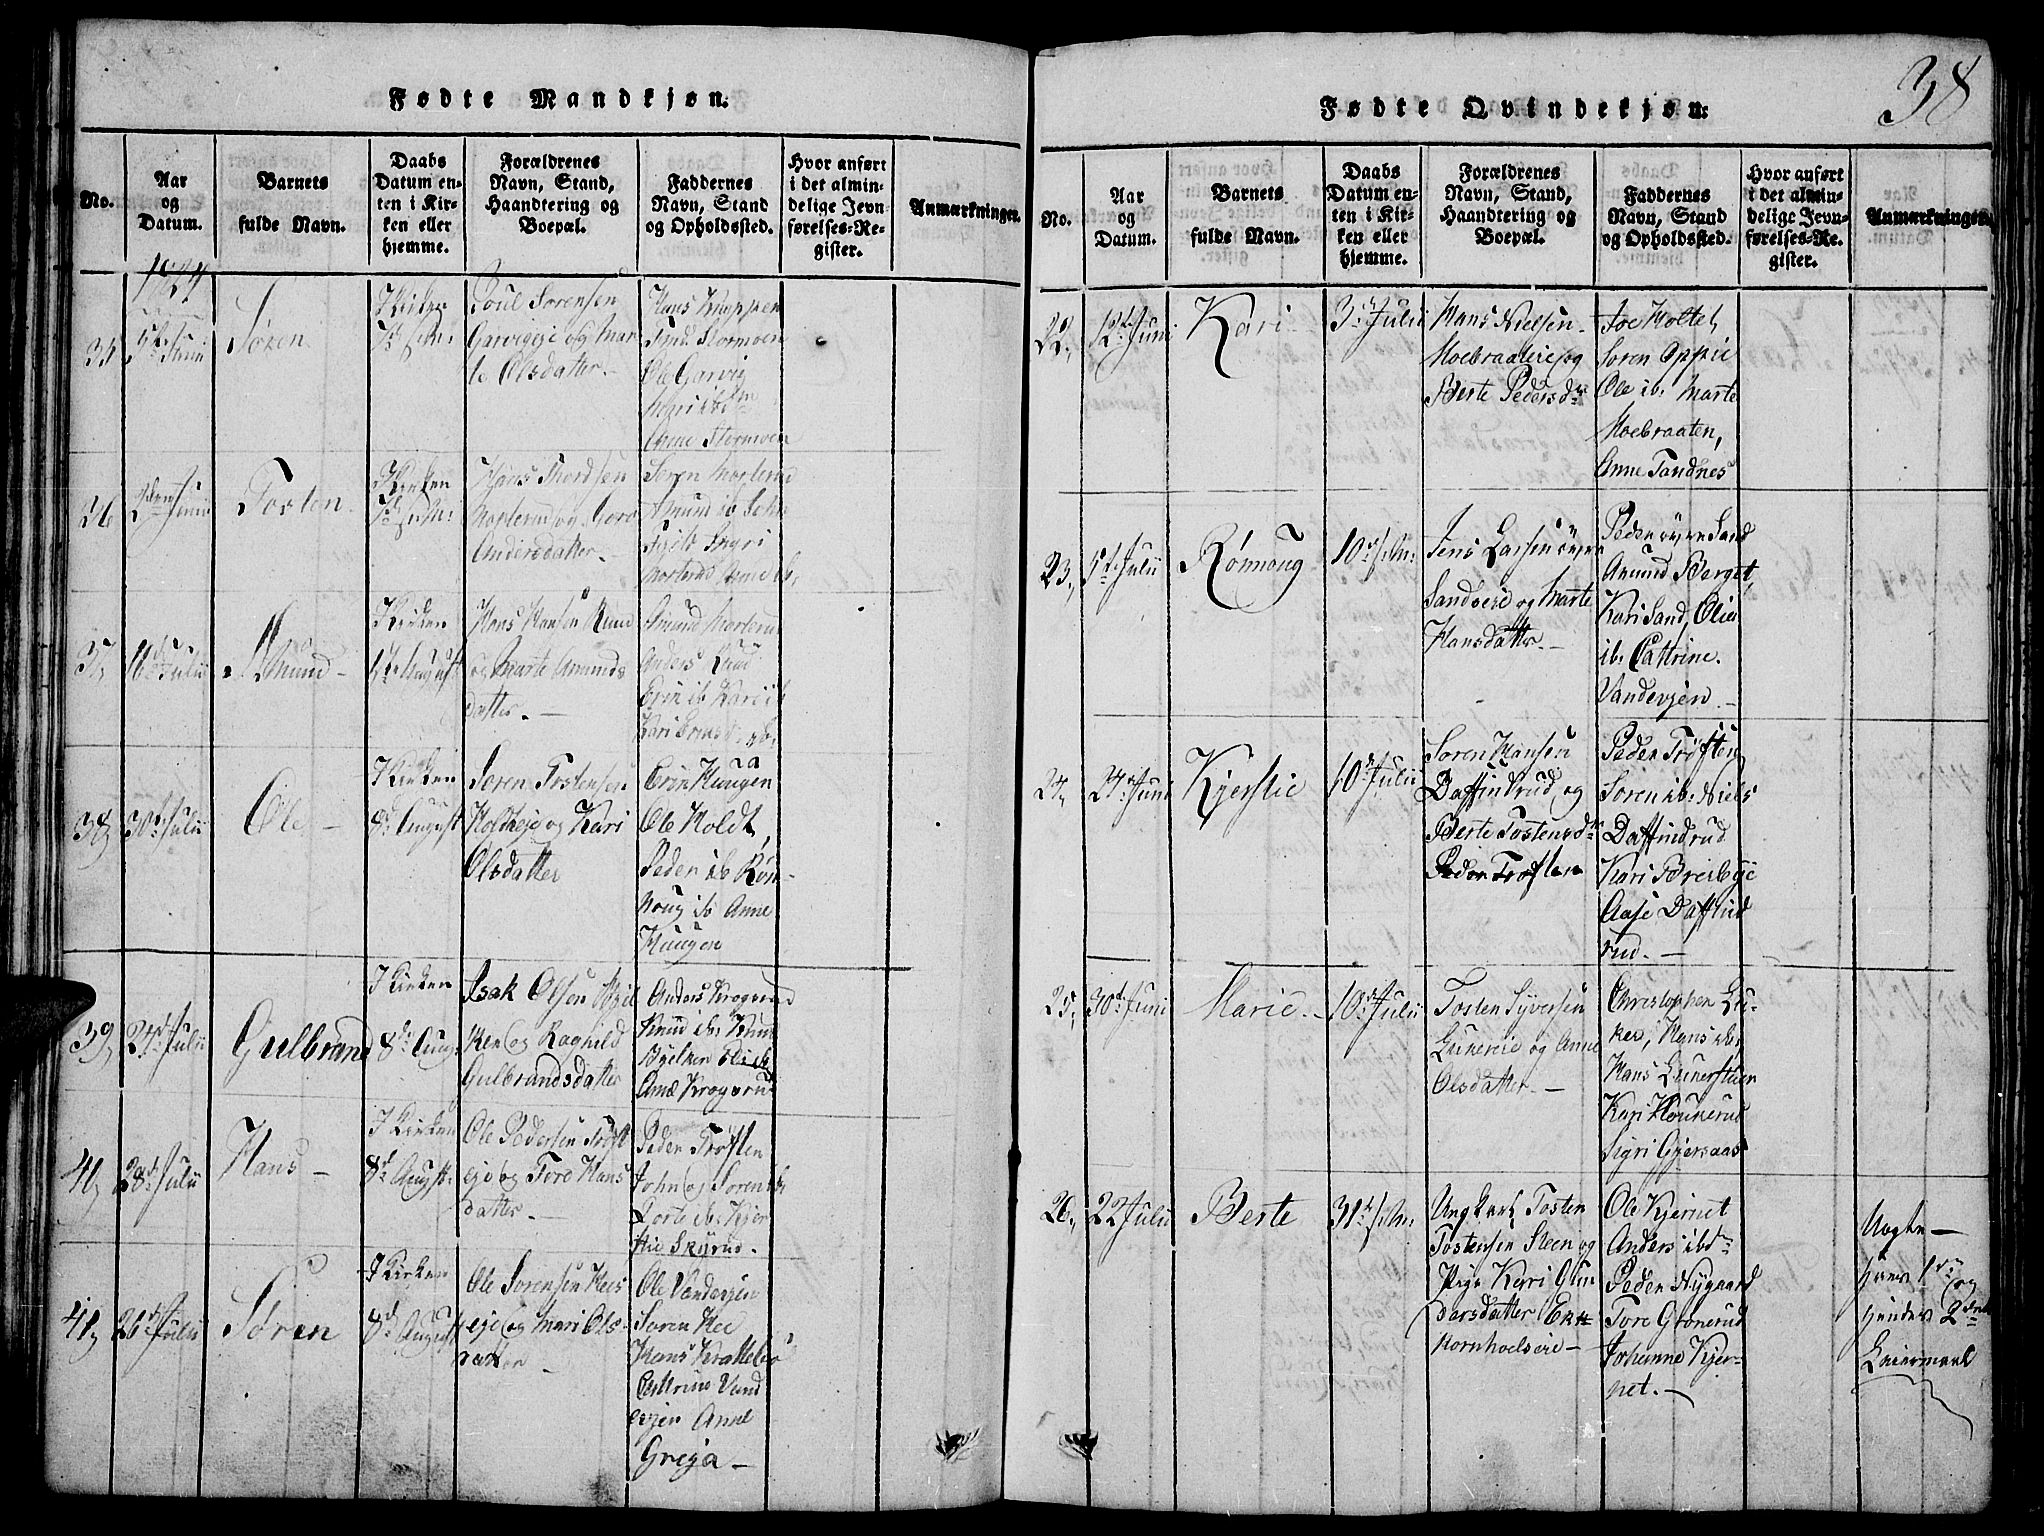 38
Fødte Mandkjøn.
No.
Aar
og
Datum.
Barnets
fulde Navn.
Daabs
Datum en-
ten i Kir-
ken eller
hjemme.
Forældrenes
Navn, Stand,
Haandtering og
Boepæl.
Faddernes
Navn, Stand
og Opholdssted.
Hvor anført
i det almin-
delige Jevn-
førelses-Re-
gister.
Anmærkninger.
1824
Søren
I Kirken
Poul Sørensen
Garvigeje og Mar
te Olsdatter.
Hans Knappen
Amd. Stormoen
Ole Garvig
Anne Stormoen
36
Tosten
I Kirken
Hans Thordsen
Morterud og Goro
Andersdatter.
Søren Morterud
Amund ib
Ingri
Morterud
37,
16de Julii
Amund
I Kirken
1ste August
Hans Hansen Ruud
og Marte Amunds
datter.
Amund Morterud
Anders Ruud
Erik ib Kari ib
Kari
38,
30te Julii
Ole
I Kirken
8de August
Søren Tostensen
Holdteje og Kari
Olsdatter
Erik Haugen
Ole Holdt,
Peder ib Røn-
noug ib Anne
Haugen
39,
24de Julii
Gulbrand
I Kirken
8de Aug.
Isak Olsen Bjel
ken og Raghild
Gulbrandsdatter
Anders Krogsrud
Knud ib.
Bjelken
Anne Krogsrud
40,
28de Julii
Hans
I Kirken
8de August
Ole Pedersen Trøft
eje og Tore Hans
datter.
Peder Trøften
John og Søren ib
Dorte ib. Kjer
stie Skjrud.
41,
26de Julii
Søren
I Kirken
8de August
Ole Sørensen Hees
eje og Mari Ols-
datter
Ole Vandevjen
Søren Hee
Hans Krattebøe
Cathrine Vand
evjen Anne
Greja
Fødte Qvindekjøn.
No.
Aar
og
Datum.
Barnets
fulde Navn.
Daabs
Datum en-
ten i Kir-
ken eller
hjemme.
Forældrenes
Navn, Stand,
Haandtering og
Boepæl.
Faddernes
Navn, Stand
og Opholdssted.
Hvor anført
i det almin-
delige Jevn-
førelses-Re-
gister.
Anmærkninger.
22,
12te Juni
Kari
3die Julii
Hans Nielsen
Moebraateie og
Berte Pedersdr
Joe Holte,
Søren Oppie
Ole ib. Marte
Moebraaten,
Anne Tandnes
23,
1ste Julii
Rønnoug
10de s.M.
Jens Larsen øvre
Sandseie og Marte
Hansdatter.
Peder øvre Sand
Amund Berget,
Kari Sand, Olia
ib. Cattrine
Vandevjen.
24,
24de Juni
Kjerstie
10de Julii
Søren Hansen
Daffindrud og
Berte Tostensdr
Peder Trøften
Peder Trøften
Søren ib. Niels
Daffindrud
Kari Breibye
Aase Daffind
rud.
25,
30te Juni
Marie
10de Julii
Tosten Syversen
Lukereie og Anne
Olsdatter.
Christopher Lu-
ker, Hans ib.
Hans Lukerstuen
Kari Houkerud
Sigri Gjersaas
26,
22 Julii
Berte
31te s.M.
Ungkarl Tosten
Tostensen Steen og
Pige Kari Gun
darsdatter
Kornhoelseie
Ole Kjernet
Anders ibd.
Peder Nygaard
Tore Grønerud
Johanne Kjer-
net.
Uægte
hans 1ste og
hendes 2den
Leiermaal